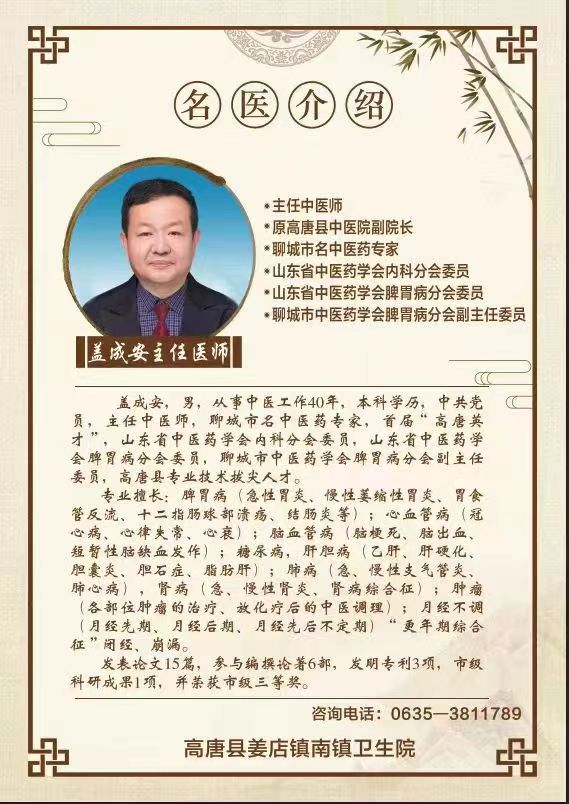 名医介绍
主任中医师
原高唐县中医院副院长
聊城市名中医药专家
山东省中医药学会内科分会委员
山东省中医药学会脾胃病分会委员
聊城市中医药学会脾胃病分会副主任委员
盖成安主任医师
盖成安，男，从事中医工作40年，本科学历，中共党
员，主任中医师，聊城市名中医药专家，首届“高唐英
才”，山东省中医药学会内科分会委员，山东省中医药学
会脾胃病分会委员，聊城市中医药学会脾胃病分会副主任
委员，高唐县专业技术拔尖人才。
专业擅长：脾胃病（急性胃炎、慢性萎缩性胃炎、胃食
管反流、十二指肠球部溃疡、结肠炎等）；心血管病（冠
心病、心律失常、心衰）；脑血管病（脑梗死、脑出血、
短暂性脑缺血发作）；糖尿病，肝胆病（乙肝、肝硬化、
胆囊炎、胆石症、脂肪肝）；肺病（急、慢性支气管炎、
肺心病），肾病（急、慢性肾炎、肾病综合征）；肿瘤
（各部位肿瘤的治疗、放化疗后的中医调理）；月经不调
（月经先期、月经后期、月经先后不定期）“更年期综合
征”闭经、崩漏。
发表论文15篇，参与编撰论著6部，发明专利3项，市级
科研成果1项，并荣获市级三等奖。
咨询电话：0635—3811789
高唐县姜店镇南镇卫生院